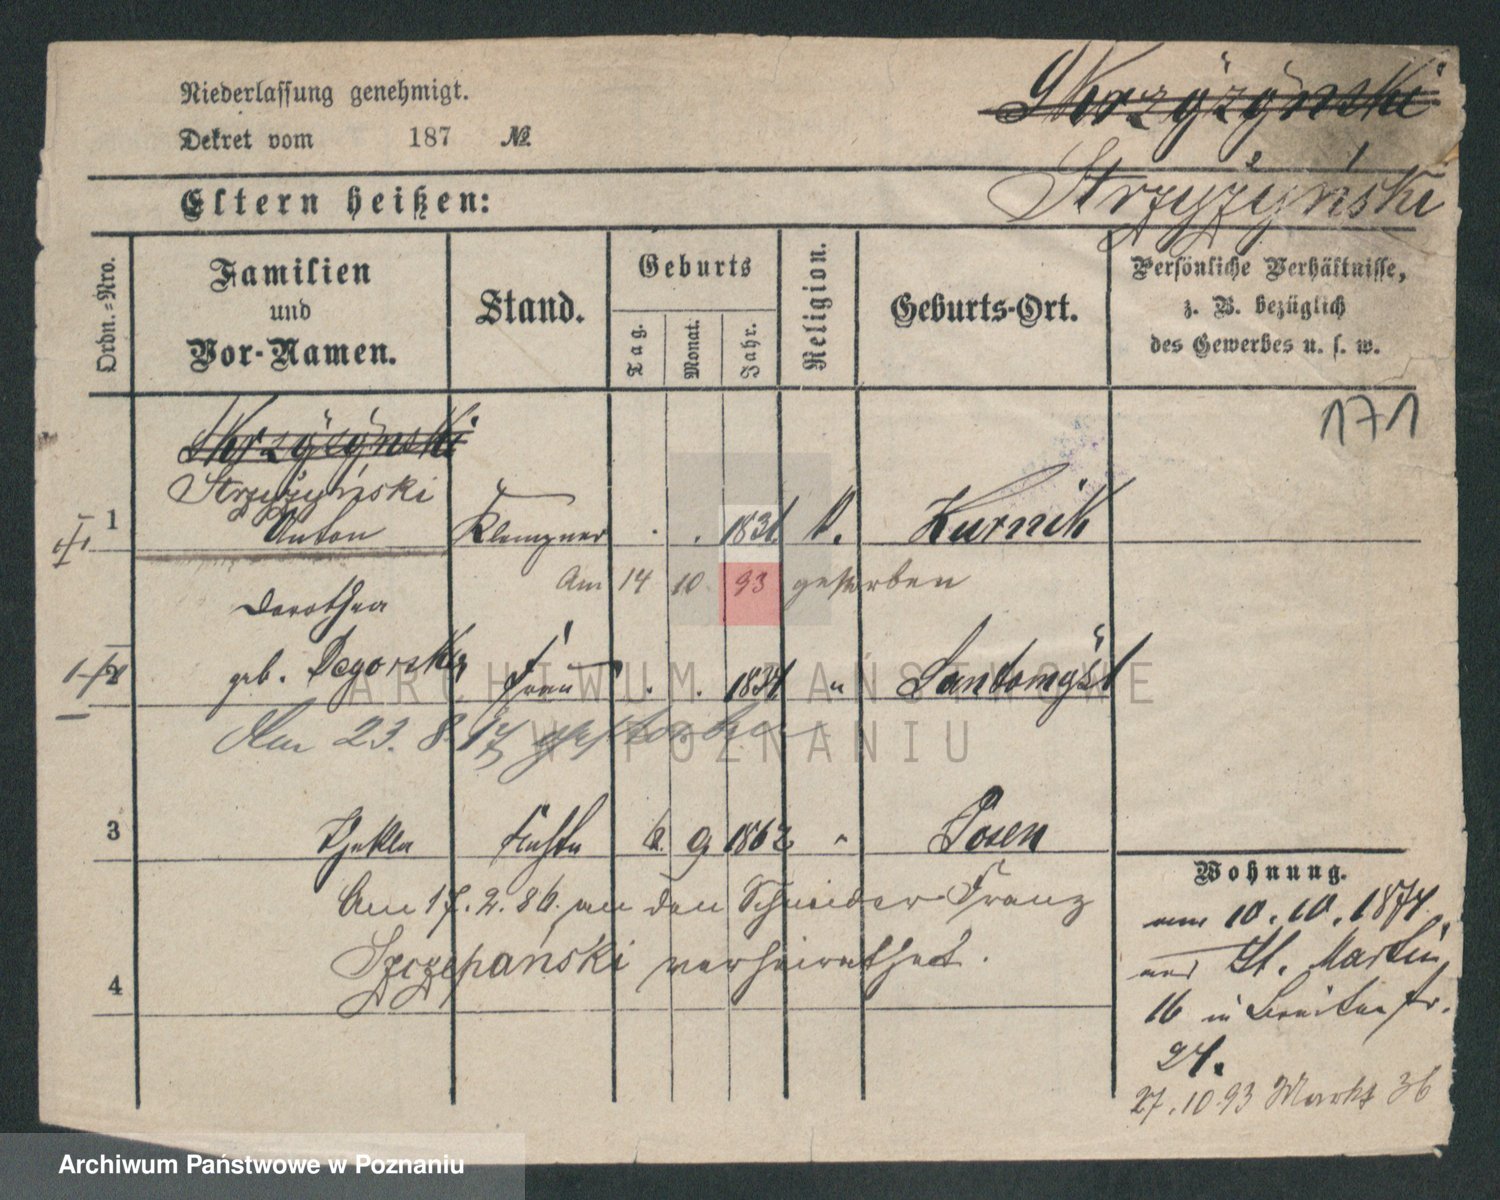 Niederlassung genehmigt.
Skorzyzynski
Dekret vom 187 №
Strzyżyński
Eltern heißen:
Ordn.-Nro.
Familien
und
Vor-Namen.
Stand.
Geburts
Tag.
Monat.
Jahr.
Religion.
Geburts-Ort.
Persönliche Verhältnisse,
z. B. bezüglich
des Gewerbes u. s. w.
171
Strzyżyński
1 Anton Klempner . . 1831 k. Kurnik
Am 14 10 93 gestorben
Dorothea
2 geb. Degorska Frau . . 1834 " Santomyśl
Am 23. 8. 17 gestorben
3 Thekla Tochter 6. 9 1862 " Posen
Am 17.2.86. an den Schneider Franz
Szczepański verheirathet.
4
Wohnung.
am 10.10.1874
St. Martin
16 in Breitestr.
24.
27.10.93 Markt 36
ARCHIWUM PAŃSTWOWE
W POZNANIU
Archiwum Państwowe w Poznaniu